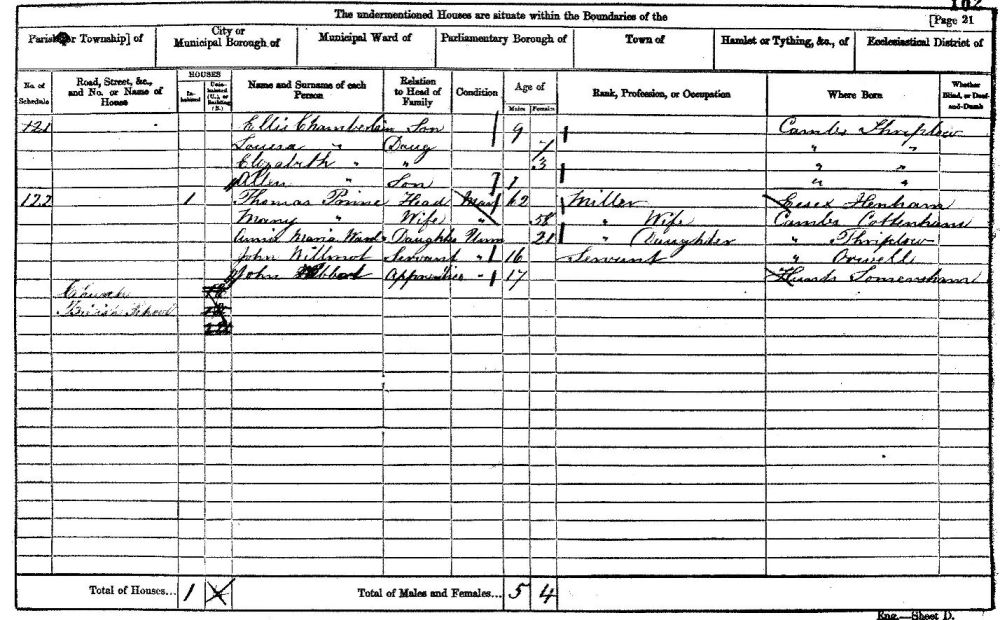 102
The undermentioned Houses are situate within the Boundaries of the
[Page 21
Parish [or Township] of
City or Municipal Borough of
Municipal Ward of
Parliamentary Borough of
Town of
Hamlet or Tything, &c., of
Ecclesiastical District of
No. of Schedule
Road, Street, &c., and No. or Name of House
HOUSES
Inhabited
Uninhabited (U.), or Building (B.)
Name and Surname of each Person
Relation to Head of Family
Condition
Age of
Males
Females
Rank, Profession, or Occupation
Where Born
Whether Blind, or Deaf-and-Dumb
121 Ellis Chamberlain Son 9 Cambs Thriplow
Louisa " Daug 7 " "
Elizabeth " " 3 " "
Allen " Son 1 " "
122 1 Thomas Prime Head Mar 62 Miller Essex Henham
Mary " Wife " 58 " Wife Cambs Cottenham
Maria Ward Daught Unm 21 " Daughter " Thriplow
John Willmot Servant " 16 Servant " Orwell
John Apprentice - 17 Hunts Somersham
Church
British School
Total of Houses... 1
Total of Males and Females... 5 4
Eng.—Sheet D.